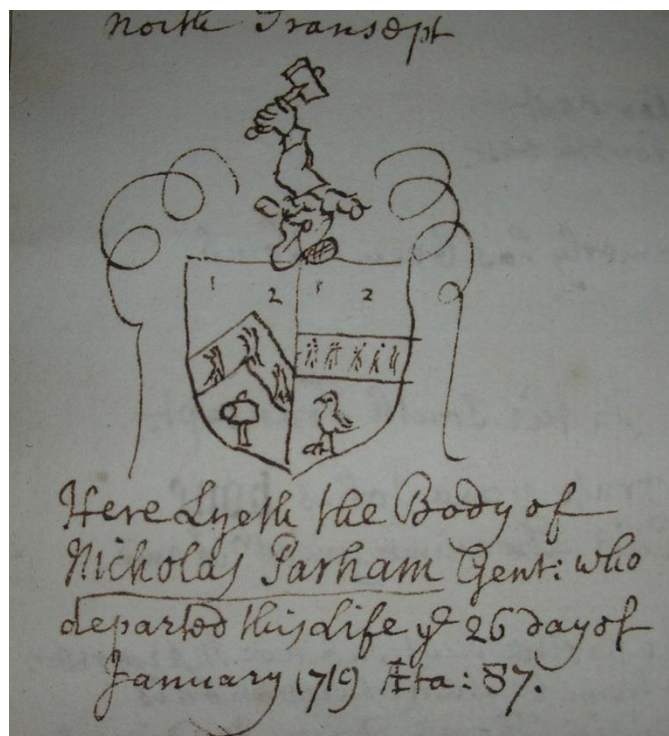 North Transept
1 2 1 2
Here Lyeth the Body of
Nicholas Parham Gent: who
departed this Life ye 26 day of
January 1719 Æta: 57.